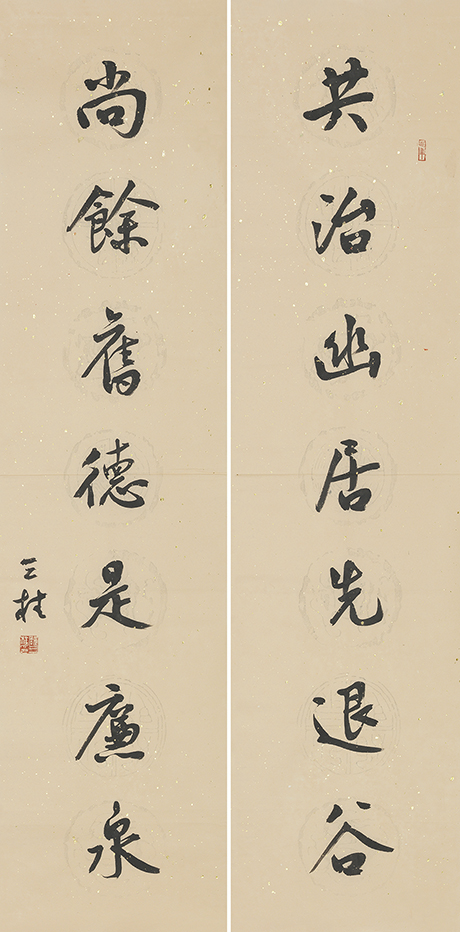 共治幽居先退谷
尚餘舊德是廉泉
三桂